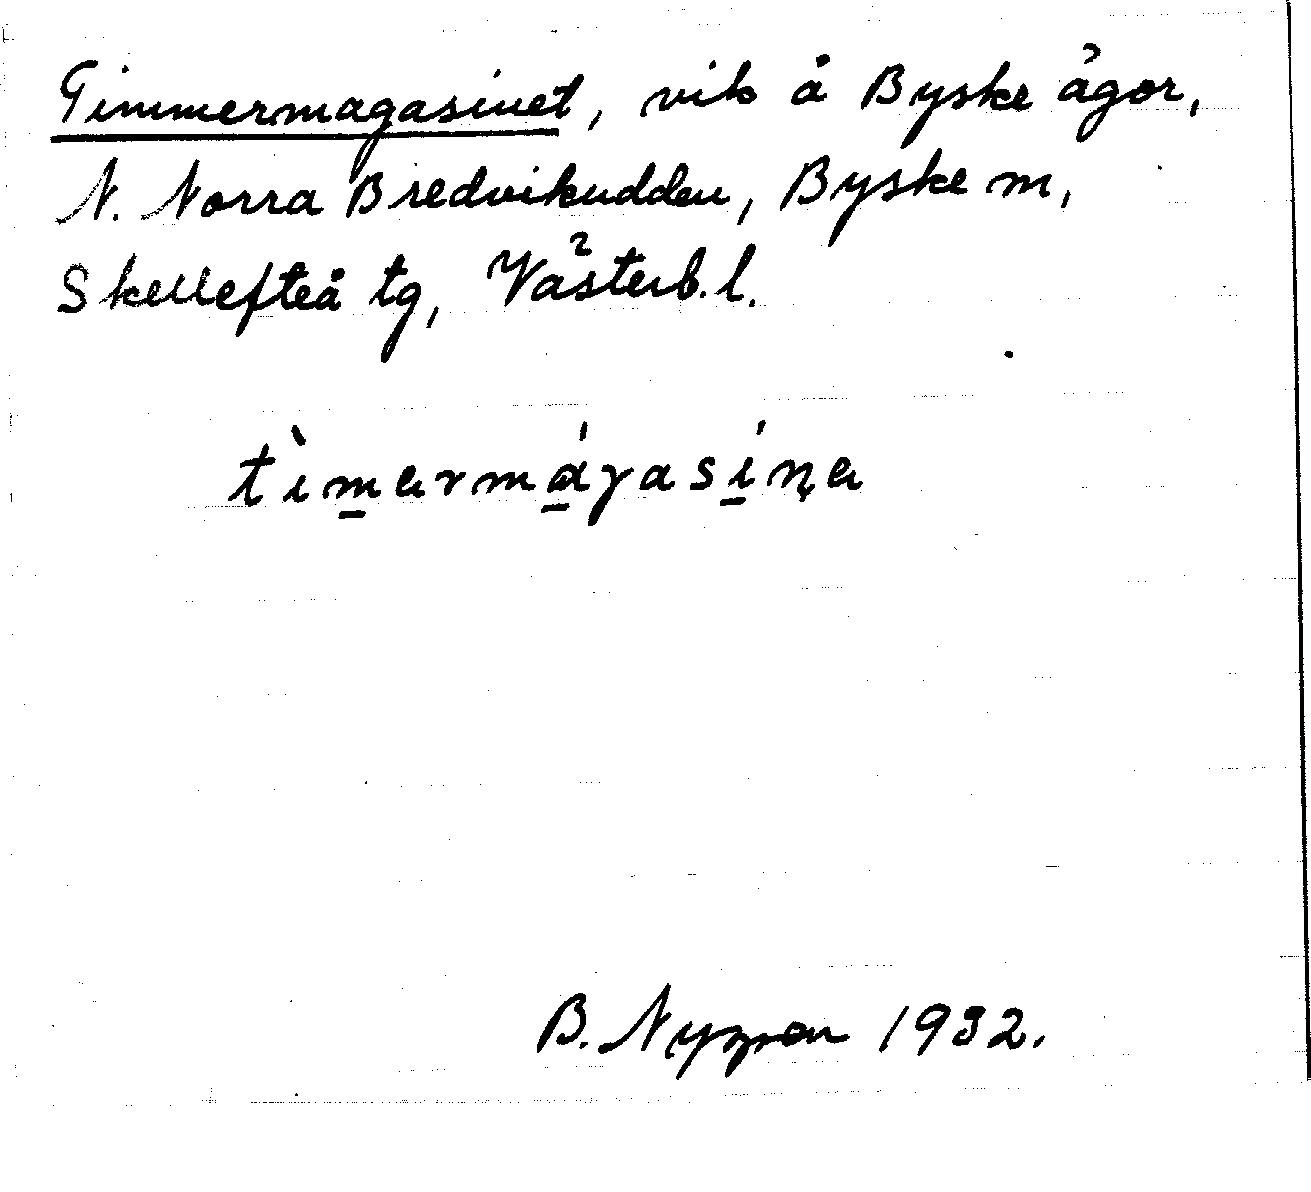 Timmermagasinet, vik å Byske ägor,
N. Norra Bredvikudden, Byske sn,
Skellefteå tg, Västerb. l.
tìm̲ərmá̲γasí̲n̨ə
B. Nyman 1932.